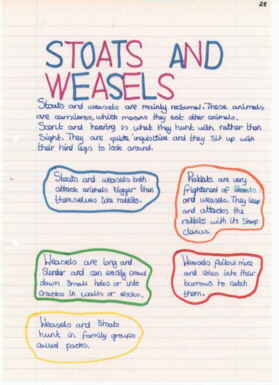 28
STOATS AND
WEASELS
Stoats and weasels are mainly nocturnal. These animals
are carnivores, which means they eat other animals.
Scent and hearing is what they hunt with rather than
sight. They are quite inquisitive and they sit up with
their hind legs to look around.
Stoats and weasels both
attack animals bigger than
themselves like rabbits.
Rabbits are very
frightened of stoats
and weasels. They leap
and attacks the
rabbits with its sharp
claws.
Weasels are long and
slender and can easily crawl
down small holes or into
cracks in walls or rocks.
Weasels follow mice
and voles into their
burrows to catch
them.
Weasels and stoats
hunt in family groups
called packs.